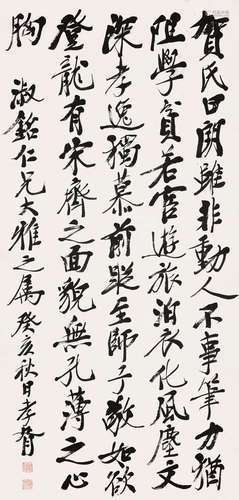 賀氏曰開雖非動人不事筆力猶
阻學貧若宦遊旅泊衣化風塵文
深孝逸獨慕前蹤至師子敬如欲
登龍有宋齊之面貌無孔薄之心
胸
淑銘仁兄大雅之屬 癸亥秋日孝胥